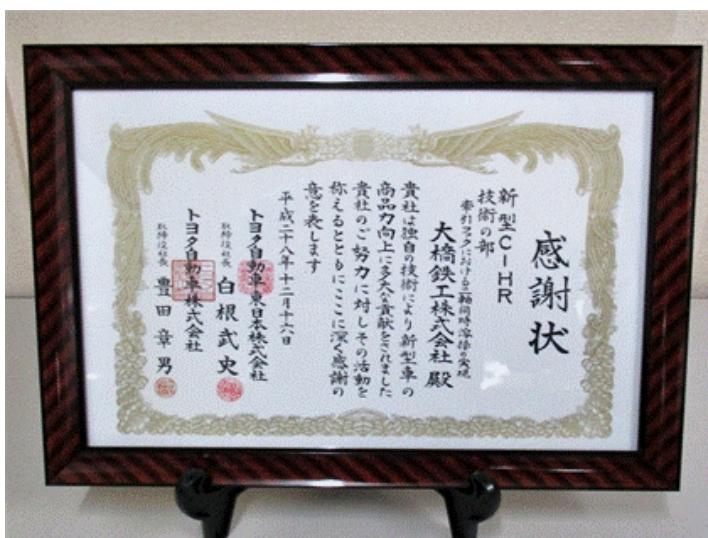 感謝状
新型C-HR
技術の部
牽引フックにおける二軸同時溶接の実現
大橋鉄工株式会社 殿
貴社は独自の技術により新型車の
商品力向上に多大な貢献をされました
貴社のご努力に対しその活動を
称えるとともにここに深く感謝の
意を表します
平成二十八年十二月十六日
トヨタ自動車東日本株式会社
取締役社長 白根武史
トヨタ自動車株式会社
取締役社長 豊田章男